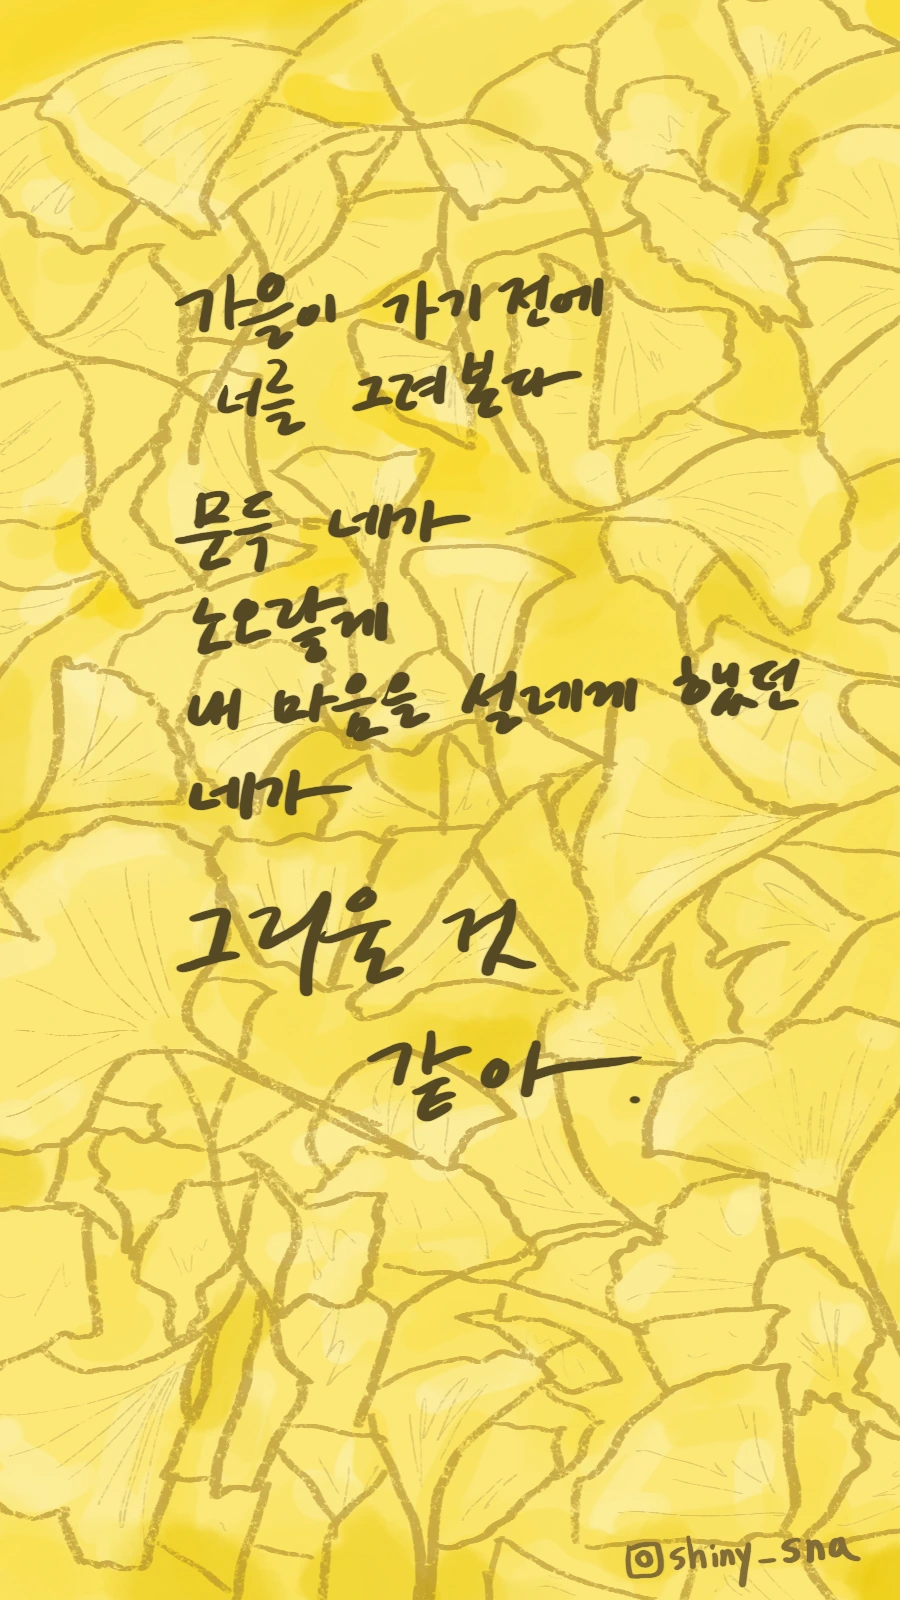 가을이 가기 전에
너를 그려본다
문득 네가
노오랗게
내 마음을 설레게 했던
네가
그리울 것
같아.
shiny_sna